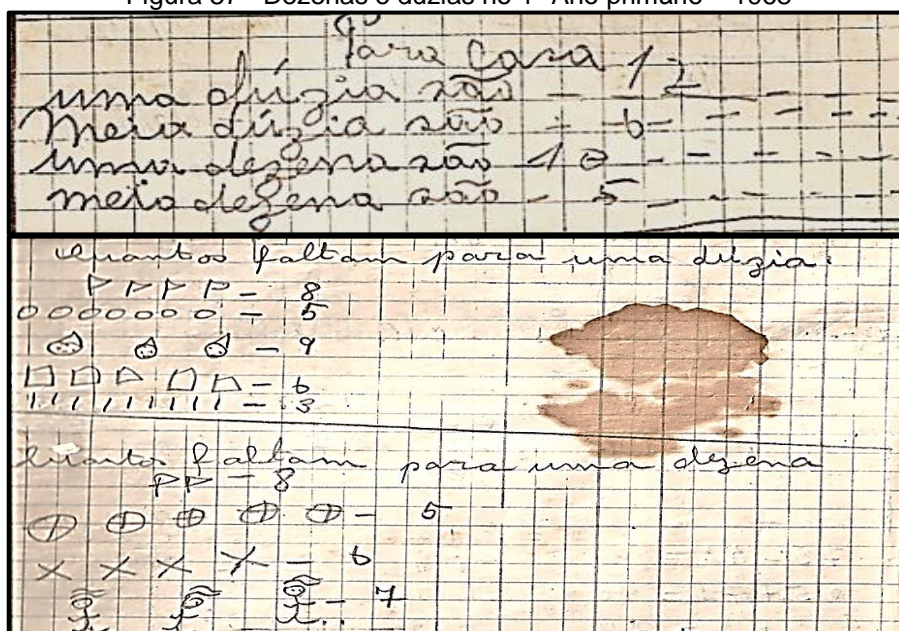 Para casa
uma dúzia são - 12
Meia dúzia são - 6
uma dezena são 10
meia dezena são - 5
Quantos faltam para uma dúzia.
- 8
- 5
- 9
- 6
- 3
Quantos faltam para uma dezena
- 8
- 5
- 6
- 7